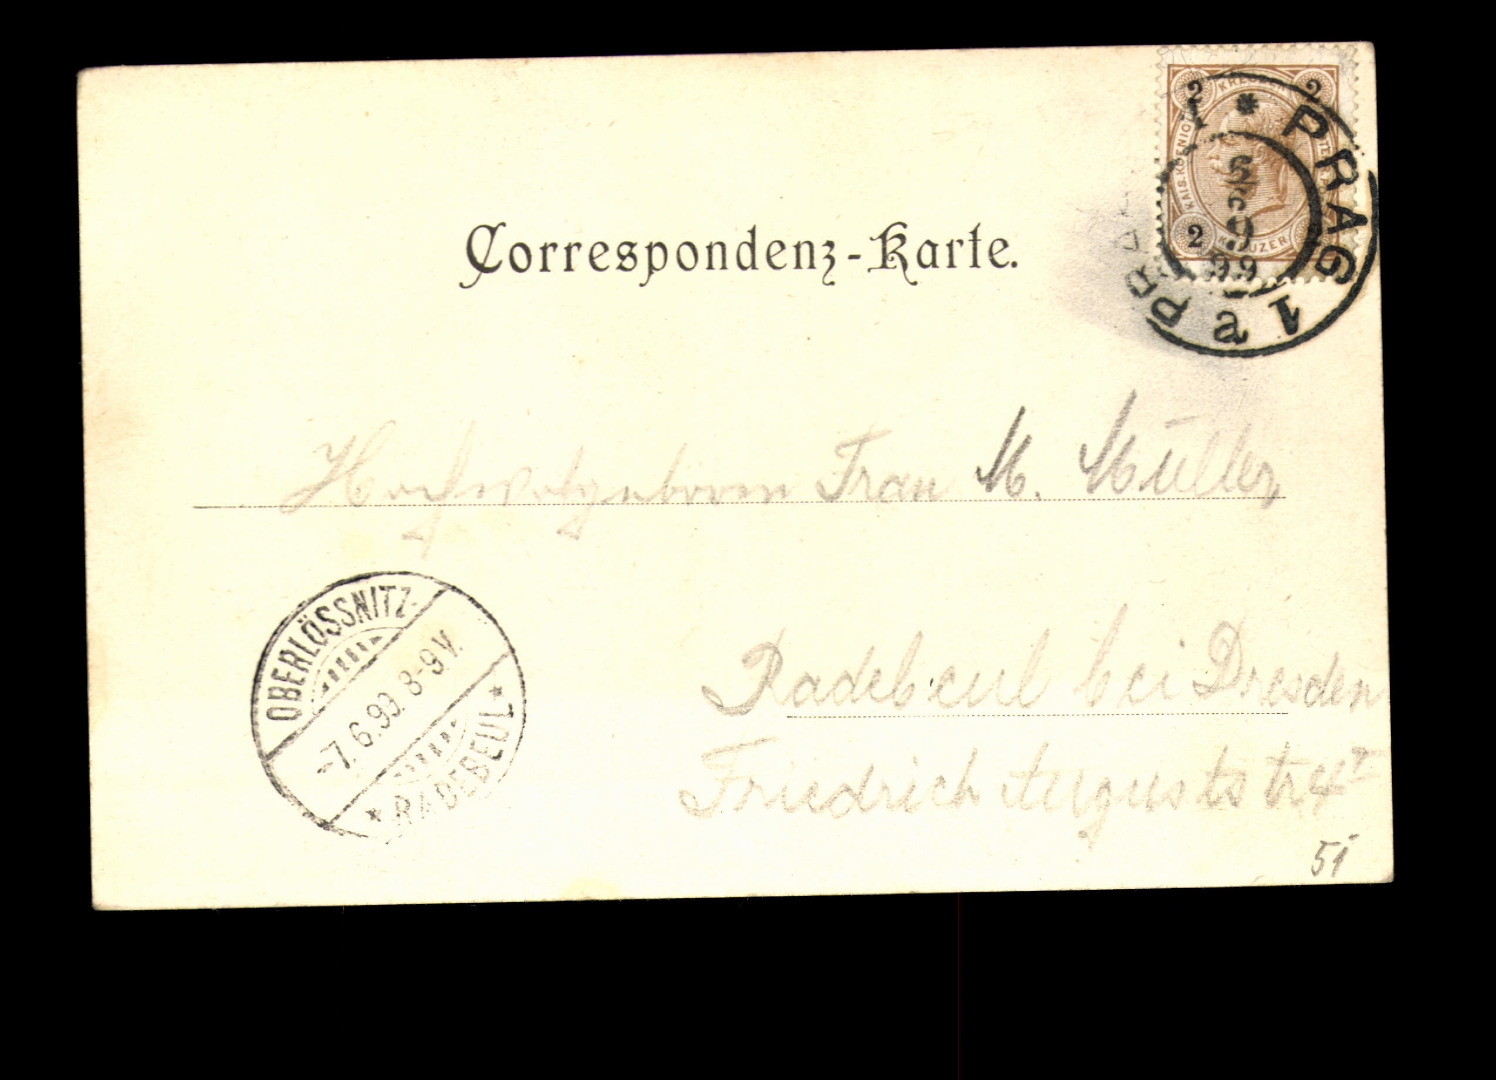 2 KREUZER 2
KAIS.KOENIGL
2 KREUZER
* PRAG 1 PRAHA 1
99
Correspondenz-Karte.
Hochwolgeboren Frau M. Müller
Radebeul bei Dresden
Friedrich Auguststr 4I
51
OBERLÖSSNITZ-
-7.6.99. 8-9V.
*RADEBEUL*